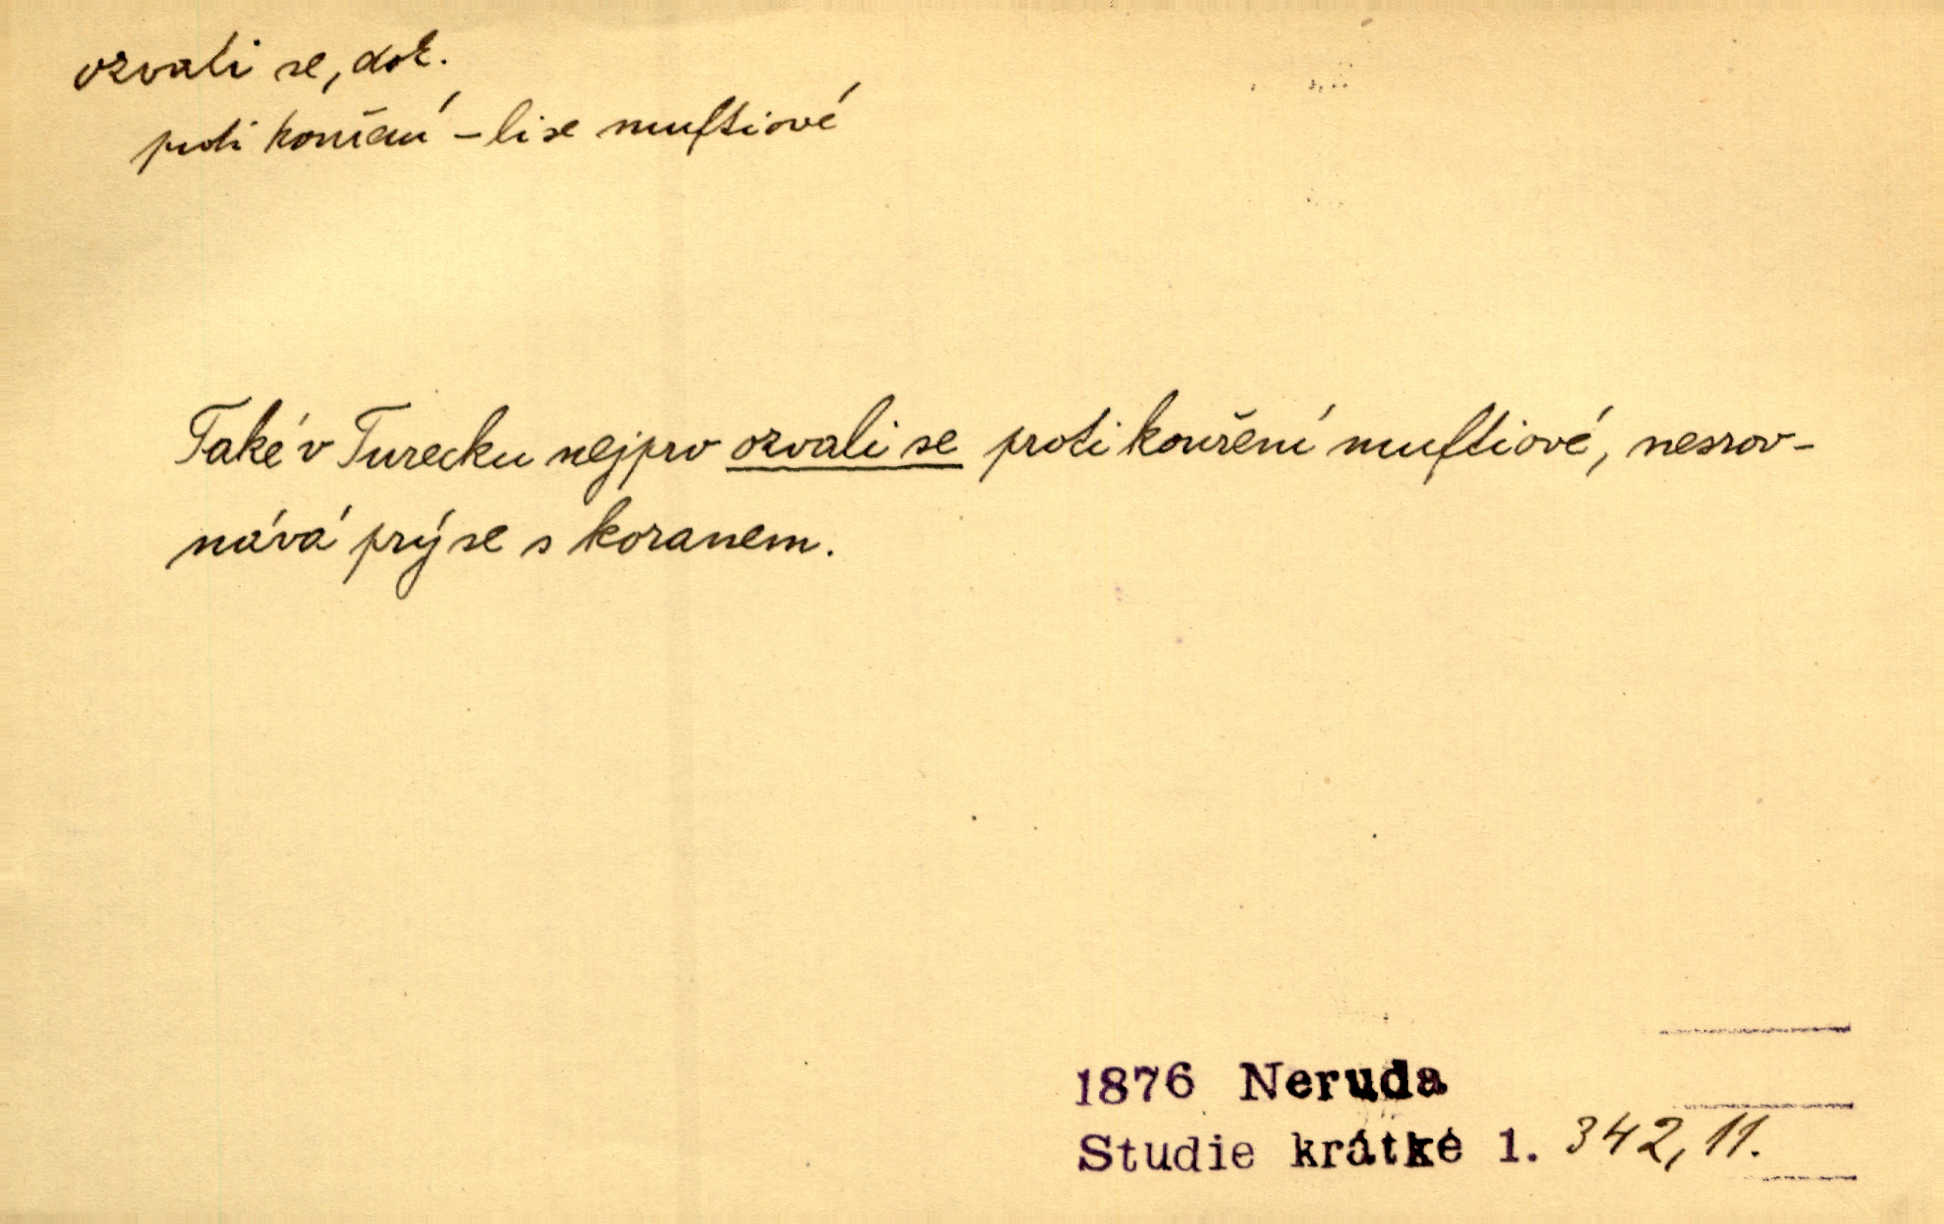 ozvali se, dok.
proti kouření -li se muftiové
Také v Turecku nejprv ozvali se proti kouření muftiové, nesrov-
nává prý se s koranem.
1876 Neruda
Studie krátké 1. 342, 11.